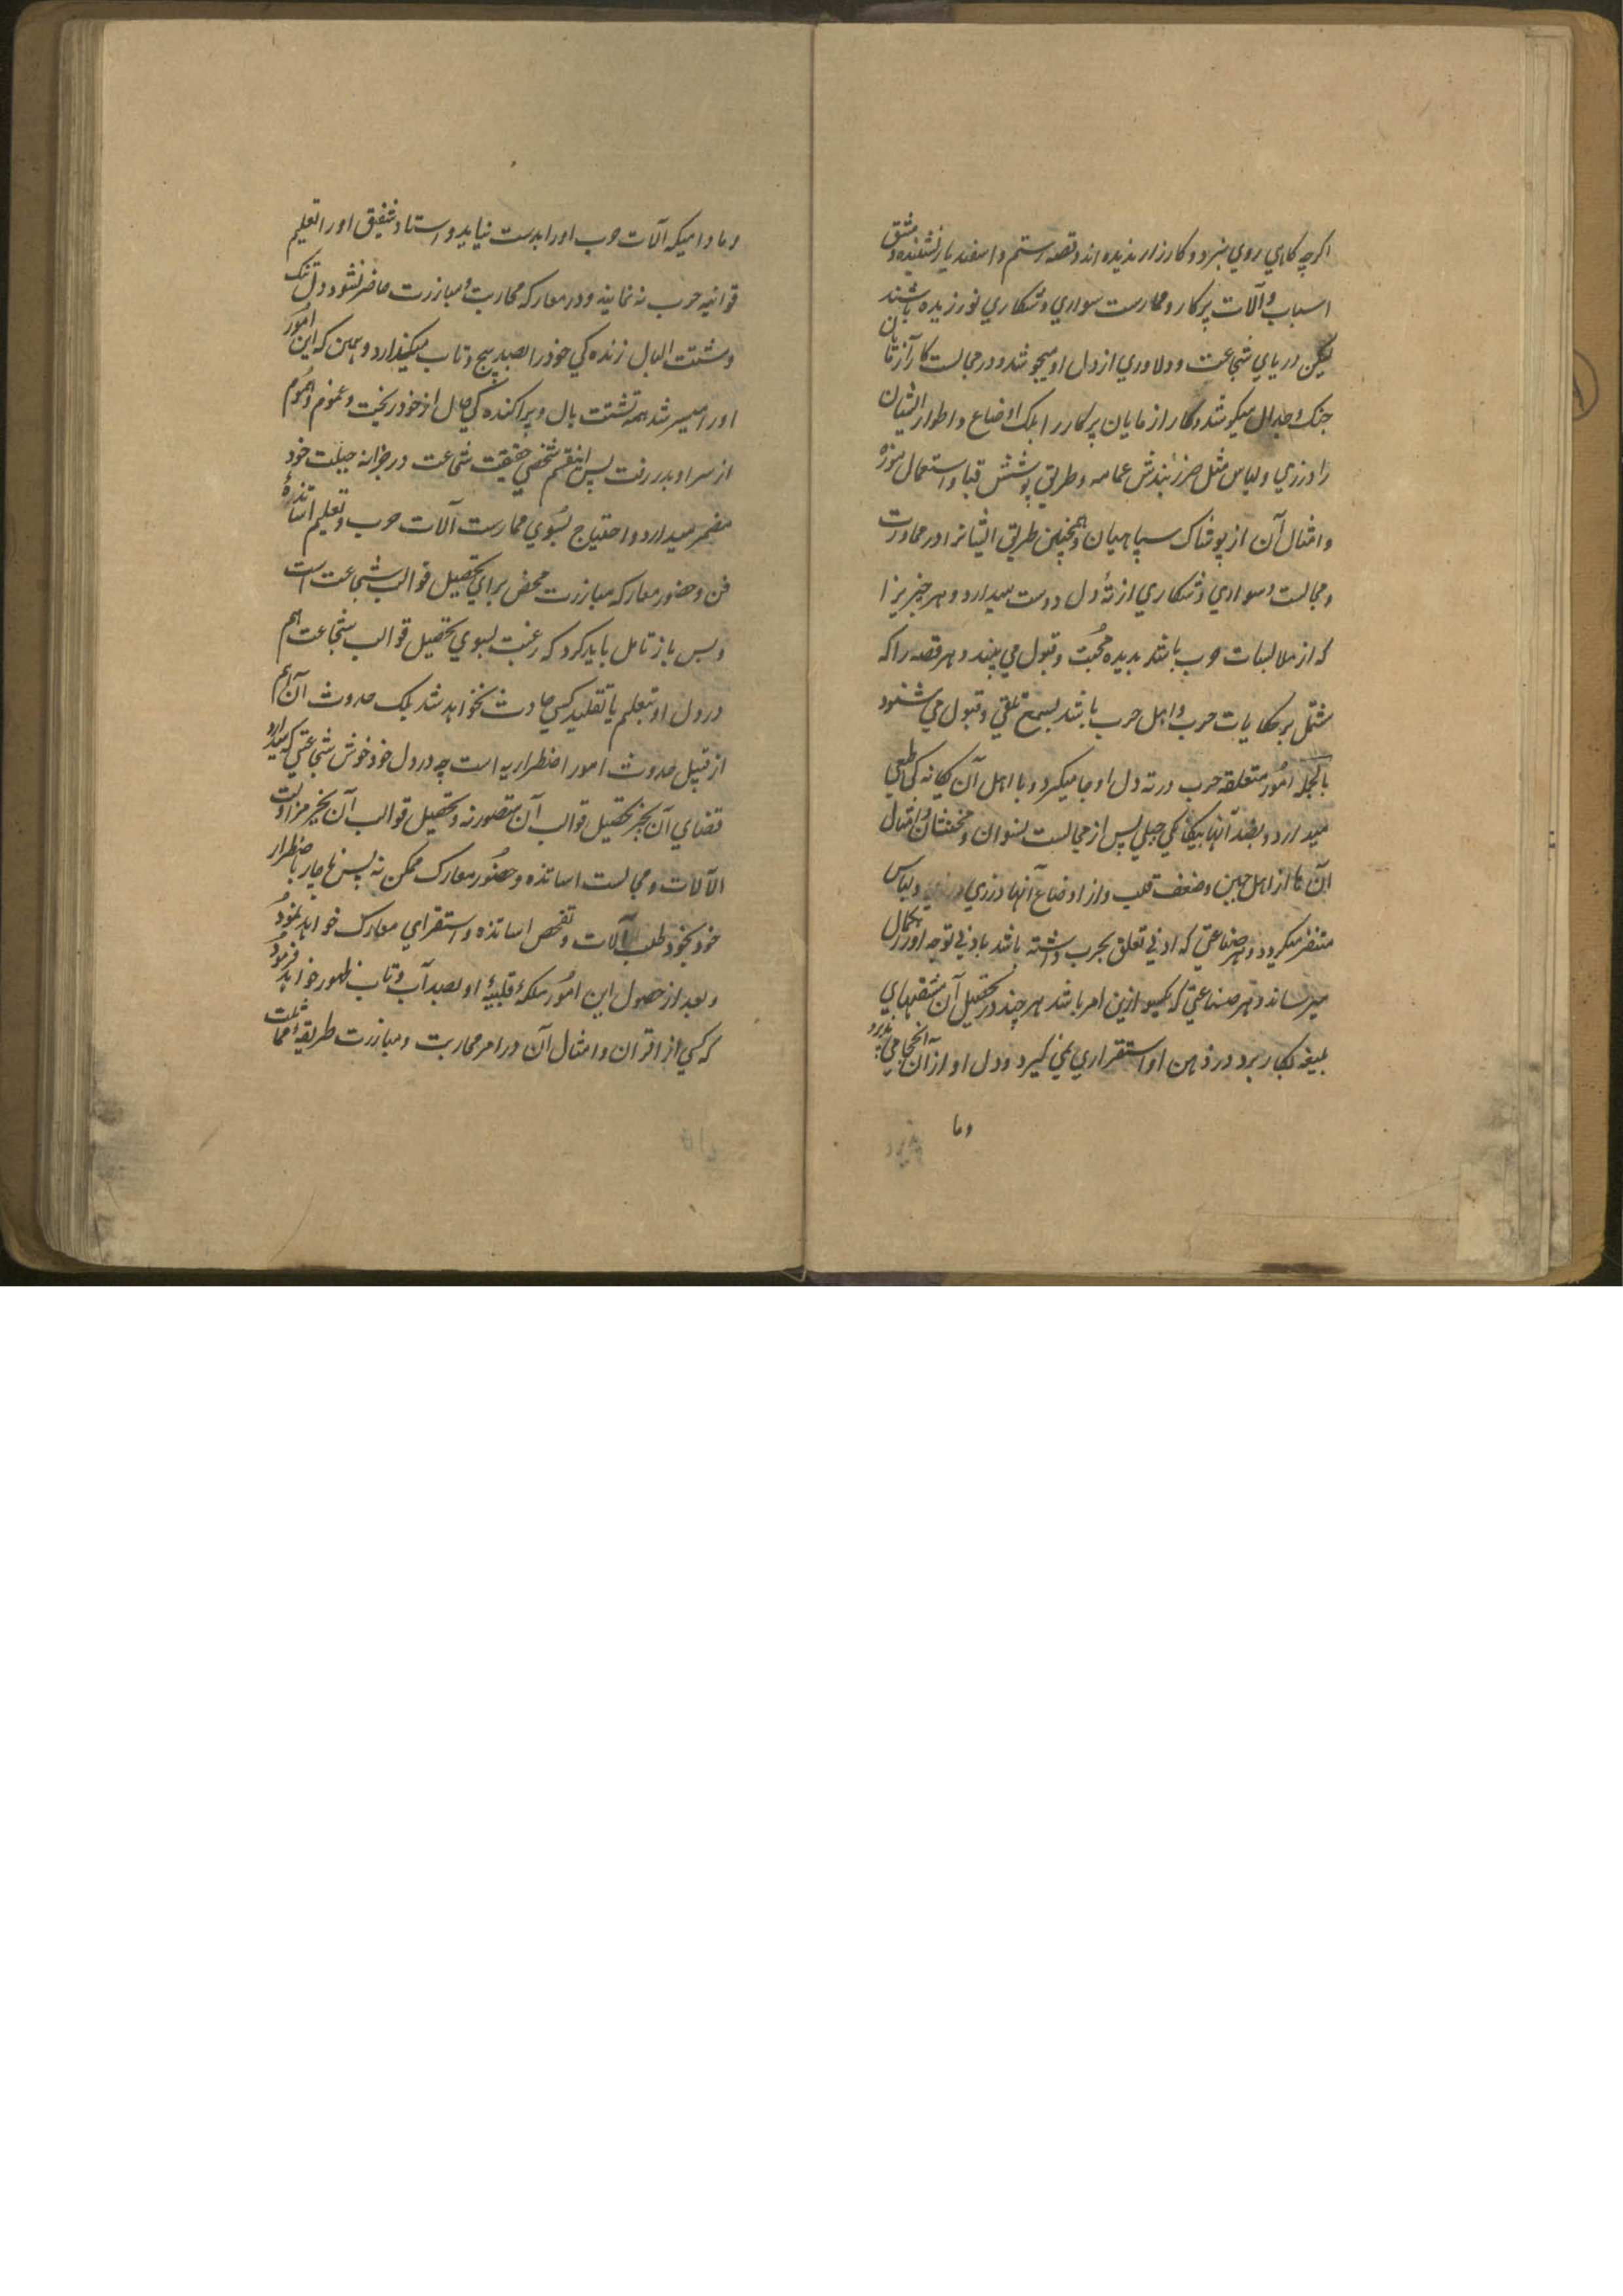 اکرچه کاهی روی نبرد و کارزار ندیده اند و قصه رستم و اسفندیار نشنیده و مشق
اسباب و آلات پرکار و ممارست سواری و شکاری نورزیده باشند
لیکن دریای شجاعت و دلاوری از دل او میجوشد و در مجالست کار آزمایان
جنک و جدال میکوشد و کار ازمایان پرکار را بلک اوضاع و اطوار ایشان
را در زی و لباس مثل طرز بندش عمامه و طریق پوشش قبا و استعمال موزه
و امثال آن از پوشاک سپاهیان و همچنین طریق ایشانرا در محاورت
و مجالست و سواری و شکاری از ته دل دوست میدارد و هر چیزیرا
که از ملابسات حرب باشد بدیده محبت و قبول می بیند و هر قصه را که
مشتمل بر حکایات حرب و اهل حرب باشد بسمع تلقی و قبول می شنود
بالجمله امور متعلقه حرب در ته دل او جا میکیرد و با اهل آن یکانه کی طبعی
میدارد و بضد آنها بیکانکی جبلی پس از مجالست نسوان و مخنثان و امثال
آن ها از اهل جبن و ضعف قلب و از اوضاع آنها در زی و لباس
متنفر میکردد و هر صناعتی که ادنی تعلق بحرب داشته باشد بادنی توجه او را بکمال
میرساند و هر صناعتی که یکسو ازین امر باشد هر چند در تحصیل آن مشقتهای
بلیغه بکار برد در ذهن او استقراری نمی کیرد و دل او از آن انجماحی پذیرد
وما
وما دامیکه آلات حرب او را بدست نیاید و استاد شفیق او را تعلیم
قوانین حرب نه نماید و در معارکه محاربت و مبازرت حاضر نشود دل تنک
و مشتت البال زنده کی خود را بصد پیچ و تاب میکذارد و همین که این امور
او را میسر شد همه تشتت بال و پراکنده کی حال از خود ریخت و غموم و هموم
از سر او بدر رفت پس اینقسم شخصی حقیقت شجاعت در خزانه جبلت خود
مضمر میدارد و احتیاج بسوی ممارست آلات حرب و تعلیم اساتذهٔ
فن و حضور معارکه مبازرت محض برای تحصیل قوالب شجاعت است
و بس باز تامل باید کرد که رغبت بسوی تحصیل قوالب شجاعت هم
در دل او بتعلم یا تقلید کسی حادث نخواهد شد بلک حدوث آن هم
از قبیل حدوث امور اضطراریه است چه در دل خود خوش شجاعتی که میدارد
قضای آن بجز تحصیل قوالب آن متصور نه و تحصیل قوالب آن بجز مزاولت
الآلات و مجالست اساتذه و حضور معارک ممکن نه پس ناچار باضطرار
خود بخود طلب آلات و تفحص اساتذه و استقرای معارک خواهد نمود
و بعد از حصول این امور ملکهٔ قلبیهٔ او بصد آب و تاب ظهور خواهد فرمود
که کسی از اقران و امثال آن در امر محاربت و مبازرت طریقهٔ مماثلت